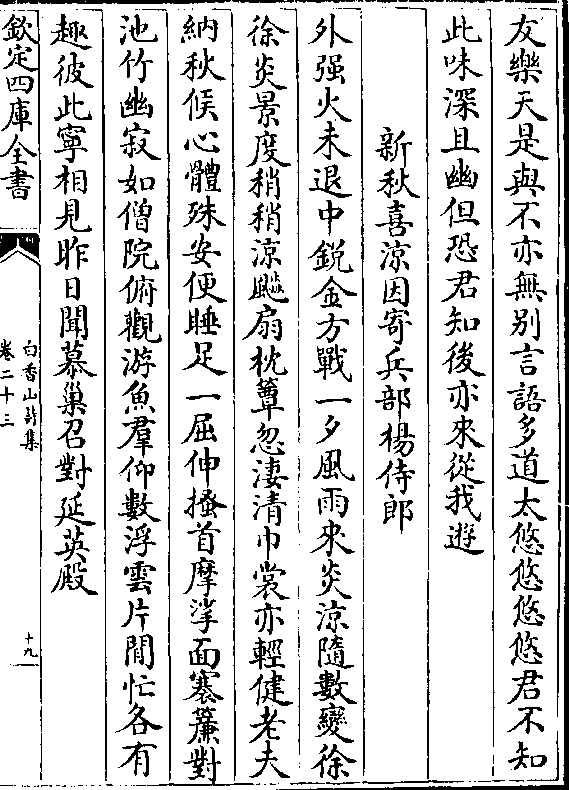 友樂天是與不亦無别言語多道太悠悠悠悠君不知
此味深且幽但恐君知後亦來從我遊
新秋喜涼因寄兵部楊侍郎
外强火未退中鋭金方戰一夕風雨來炎涼隨數變徐
徐炎景度稍稍涼飈扇枕簟忽淒清巾裳亦輕健老夫
納秋候心體殊安便睡足一屈伸搔首摩挲面褰簾對
池竹幽寂如僧院俯觀游魚羣仰數浮雲片閒忙各有
趣彼此寧相見昨日聞慕巢召對延英殿
欽定四庫全書
白香山詩集
卷二十三
十九